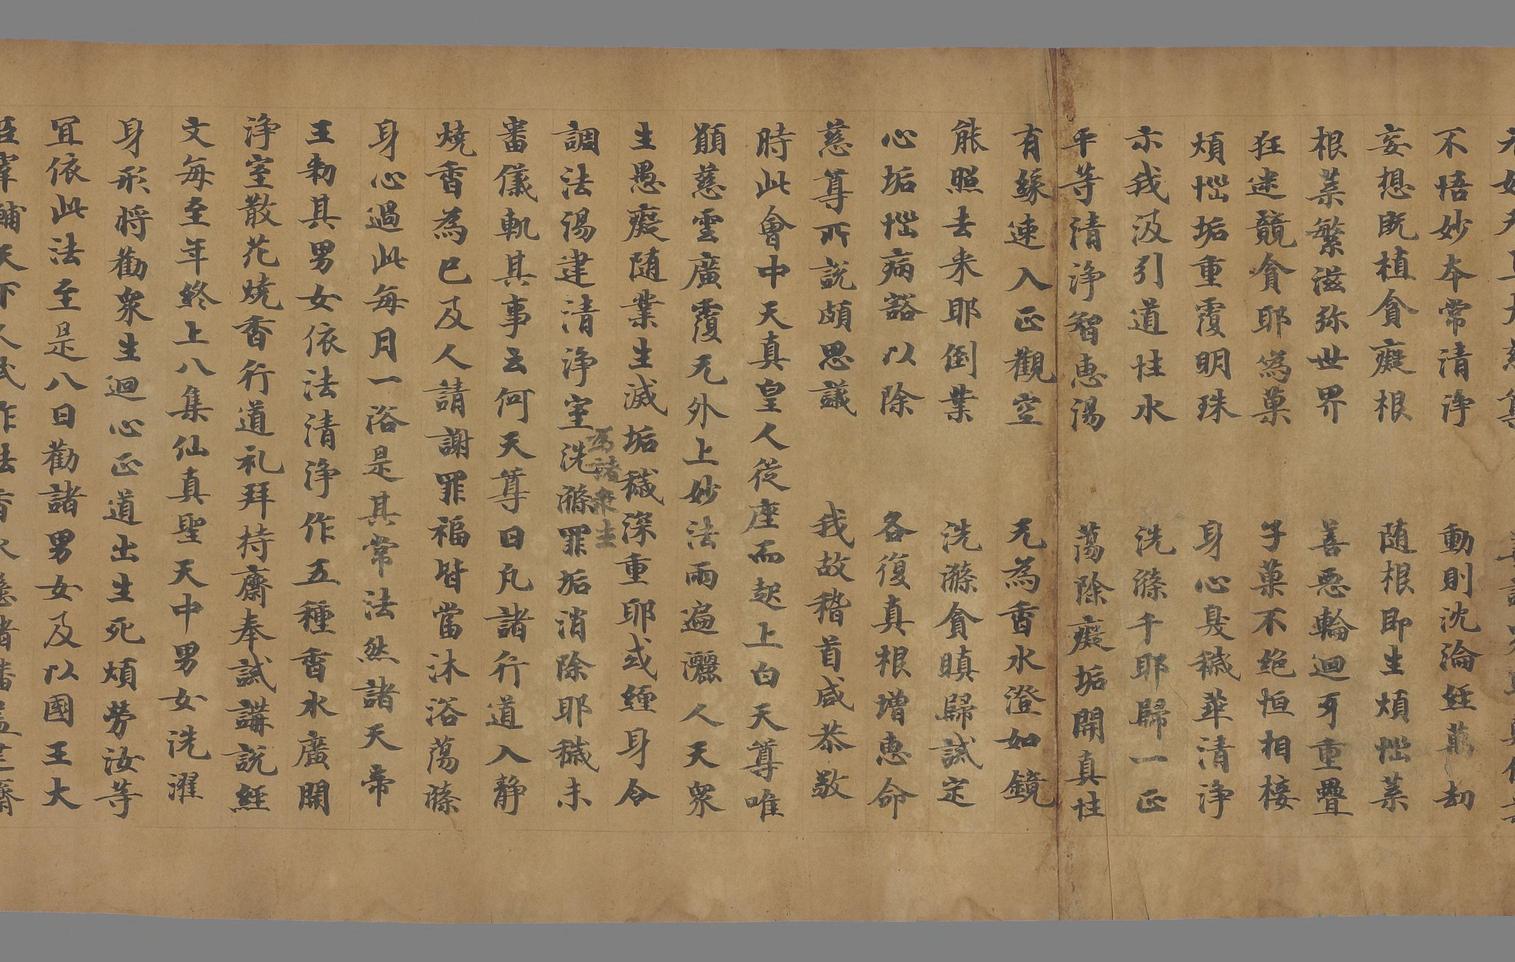 不悟妙夲常清浄 動則沈淪經万劫
妄想既植貪癡根 随根即生煩惱葉
根葉繁滋弥世界 善惡輪迴牙重疊
狂迷競貪耶為菓 子菓不絶恒相接
煩惱垢重覆明珠 身心臭穢葬清浄
示我汲引道性水 洗滌千耶歸一正
平等清浄智惠湯 蕩除癡垢開真性
有緣速入正觀空 无為香水澄如鏡
能照去来耶倒業 洗滌貪瞋歸誡定
心垢惱病豁以除 各復真根增惠命
慈尊所說頗思議 我故稽首咸恭敬
時此會中天真皇人從座而起上白天尊唯
願慈雲廣覆无外上妙法雨遍灑人天衆
生愚癡随業生滅垢穢深重耶或纏身令
調法湯建清浄室為諸衆生洗滌罪垢消除耶穢未
審儀軌其事云何天尊曰凡諸行道入静
燒香為已及人請謝罪福皆當沐浴蕩滌
身心過此每月一浴是其常法然諸天帝
王勑其男女依法清浄作五種香水廣開
浄室散花燒香行道礼拜持齋奉誡講説經
文每至年終上八集仙真聖天中男女洗濯
身形将勸衆生迴心正道出生死煩勞汝等
冝依此法至是八日勸諸男女及以國王大